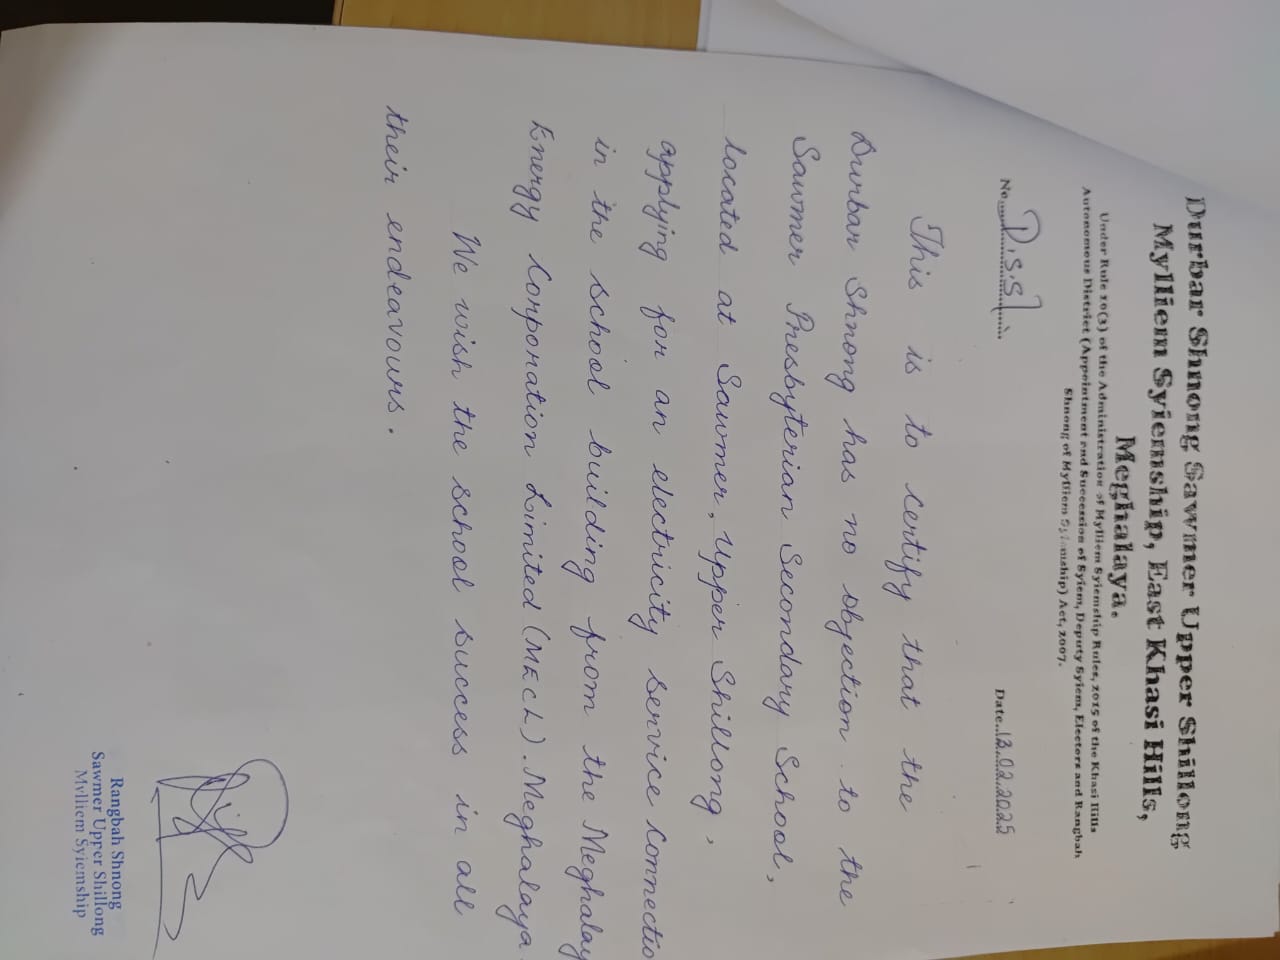 Durbar Shnong Sawmer Upper Shillong
Mylliem Syiemship, East Khasi Hills,
Meghalaya.
Under Rule 10(3) of the Administration of Mylliem Syiemship Rules, 2015 of the Khasi Hills
Autonomous District (Appointment and Succession of Syiem, Deputy Syiem, Electors and Rangbah
Shnong of Mylliem Syiemship) Act, 2007.
No. D.S.S/ Date. 13.02.2025
This is to certify that the
Durbar Shnong has no objection to the
Sawmer Presbyterian Secondary School,
located at Sawmer, Upper Shillong,
applying for an electricity service connectio
in the school building from the Meghalay
Energy Corporation Limited (MECL). Meghalaya.
We wish the school success in all
their endeavours.
Rangbah Shnong
Sawmer Upper Shillong
Mylliem Syiemship